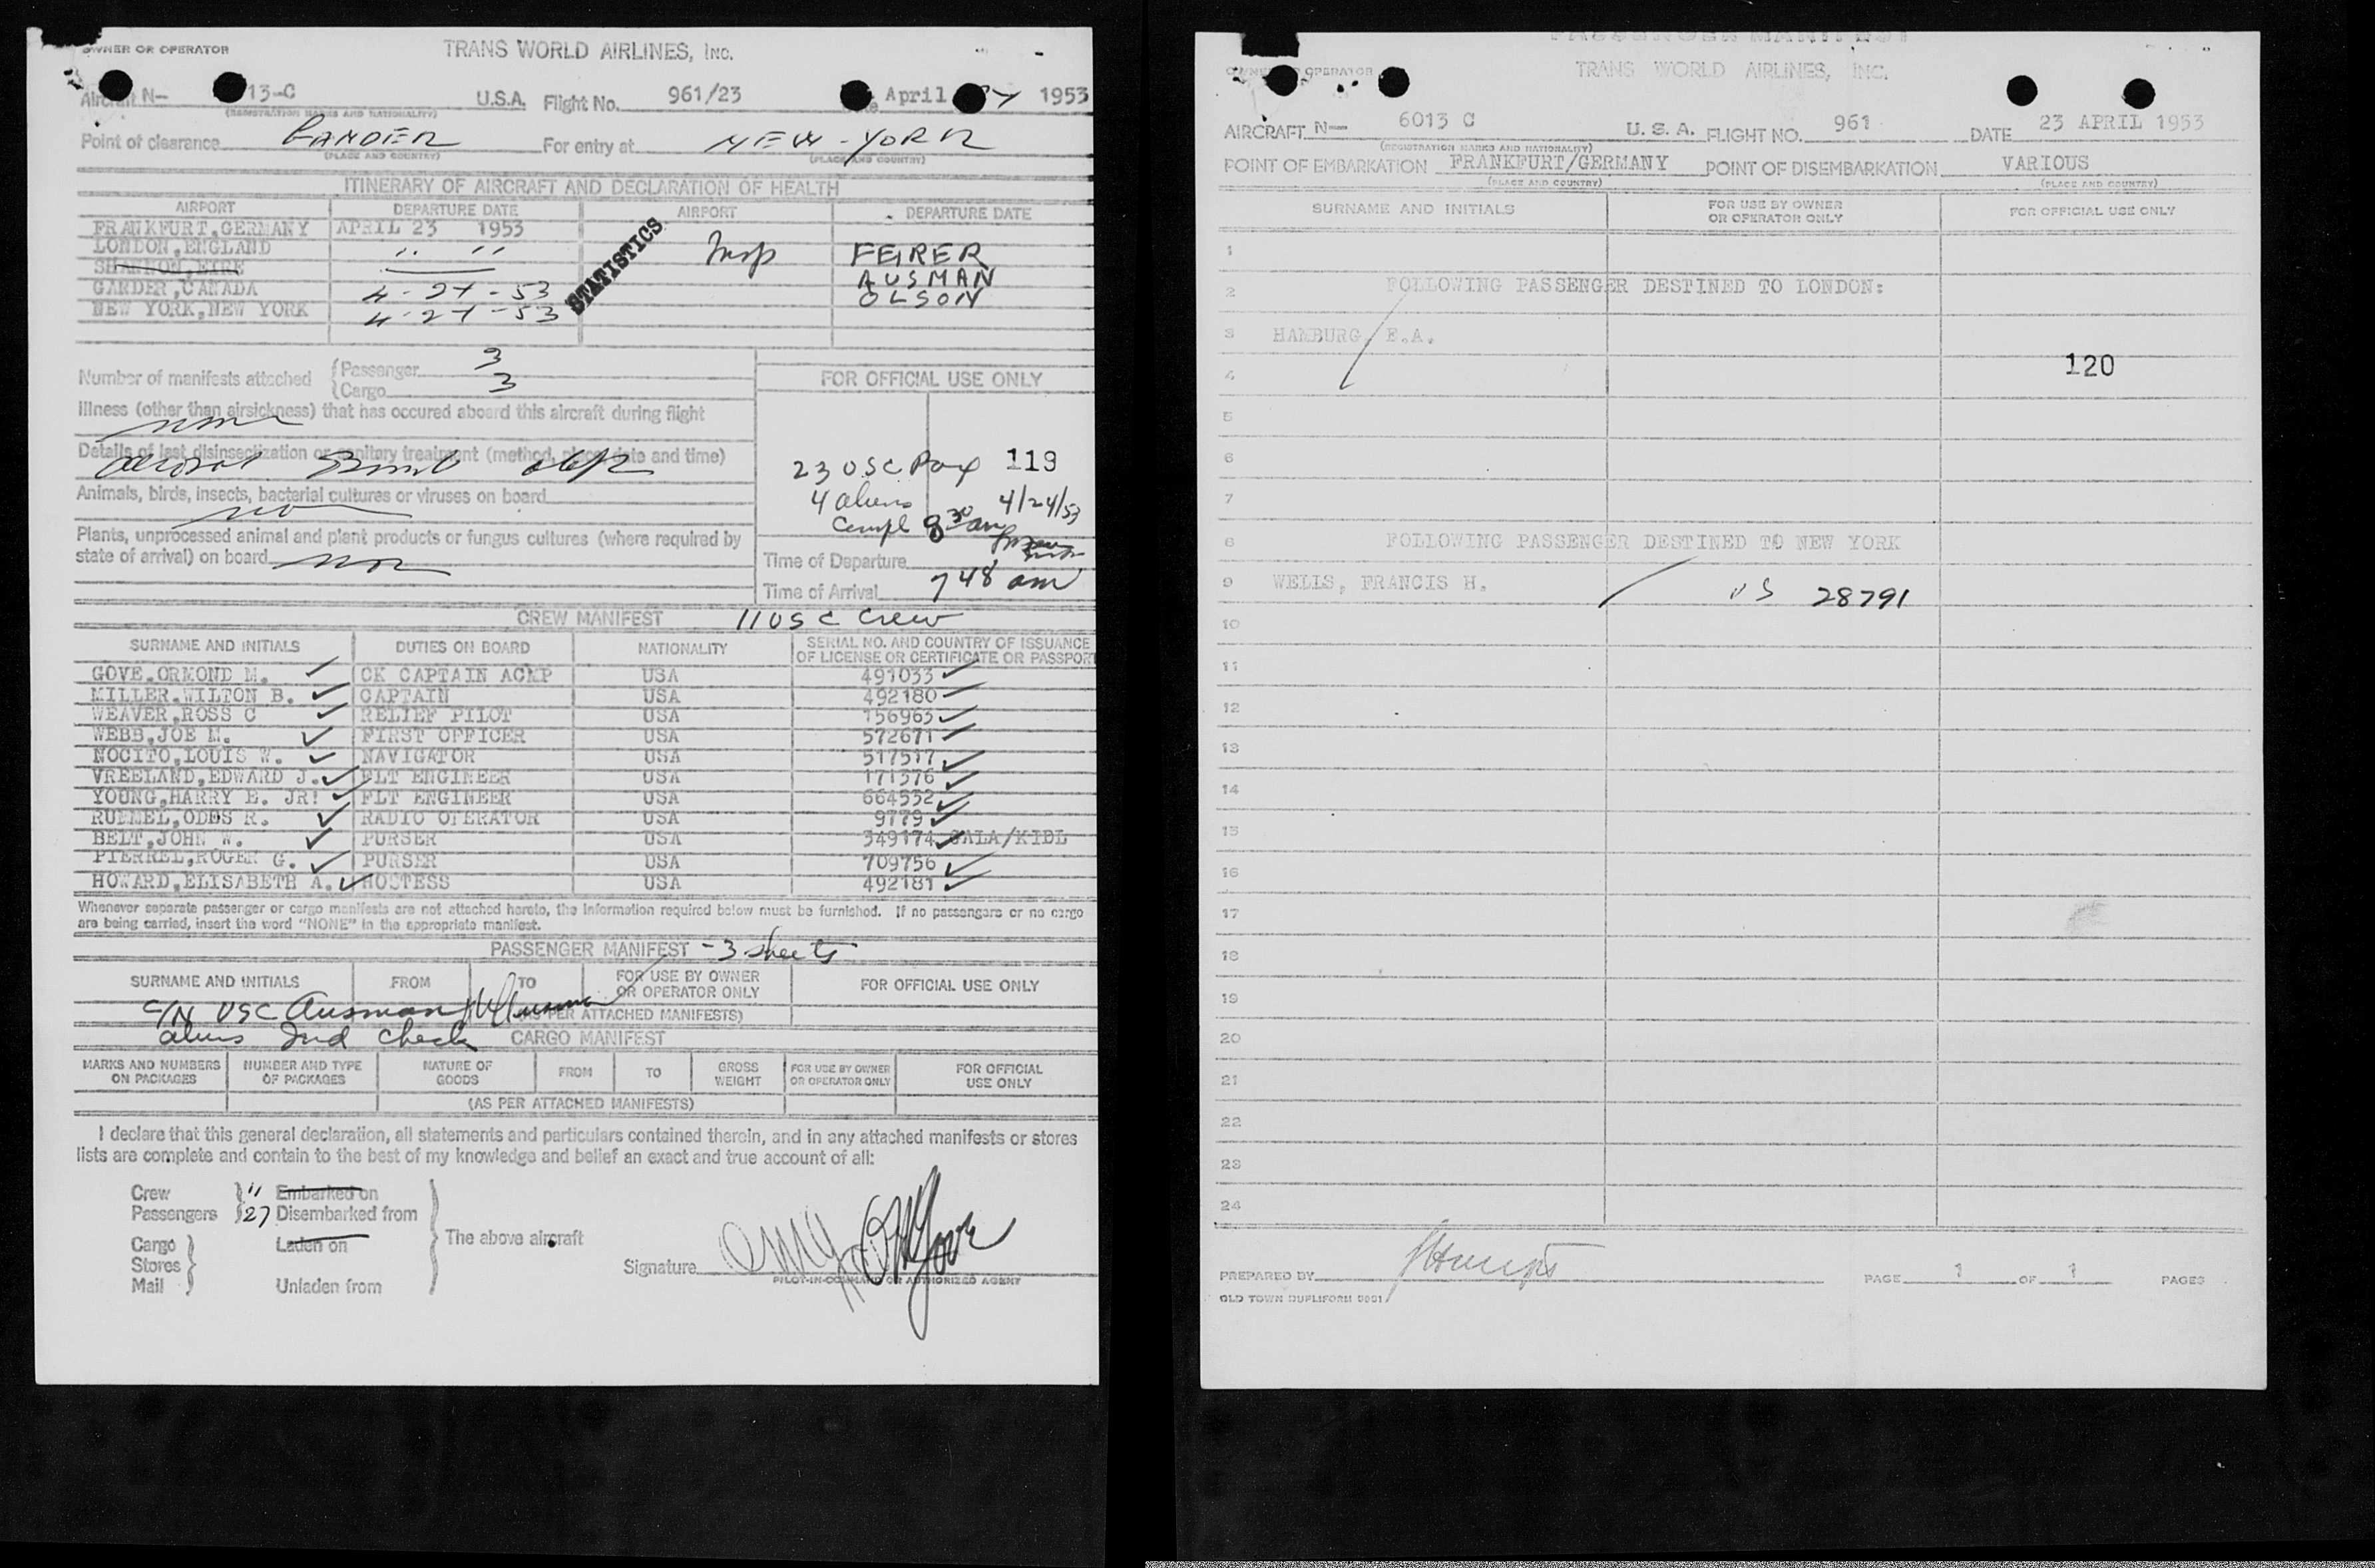 OWNER OR OPERATOR TRANS WORLD AIRLINES, INC.
Aircraft N- 13-C U.S.A. Flight No. 961/23 April 1953
(REGISTRATION MARKS AND NATIONALITY)
Point of clearance GANDER For entry at NEW-YORK
(PLACE AND COUNTRY) (PLACE AND COUNTRY)
ITINERARY OF AIRCRAFT AND DECLARATION OF HEALTH
AIRPORT DEPARTURE DATE AIRPORT DEPARTURE DATE
FRANKFURT,GERMANY APRIL 23 1953
LONDON,ENGLAND " " Insp FEIRER
SHANNON,EIRE AUSMAN
GARDER,CANADA 4-24-53 OLSON
NEW YORK,NEW YORK 4-24-53
STATISTICS
Number of manifests attached {Passenger 3
{Cargo 3
FOR OFFICIAL USE ONLY
Illness (other than airsickness) that has occured aboard this aircraft during flight
none
Details of last disinsectization or sanitary treatment (method, place, date and time)
aerosol
23 USC Pax 119
Animals, birds, insects, bacterial cultures or viruses on board
no
4 aliens 4/24/53
Compl 8 30 am
Plants, unprocessed animal and plant products or fungus cultures (where required by
state of arrival) on board
Time of Departure
Time of Arrival 7 48 am
CREW MANIFEST 11 USC Crew
SURNAME AND INITIALS DUTIES ON BOARD NATIONALITY SERIAL NO. AND COUNTRY OF ISSUANCE
OF LICENSE OR CERTIFICATE OR PASSPORT
GOVE,ORMOND M. CK CAPTAIN ACMP USA 491033
MILLER,WILTON B. CAPTAIN USA 492180
WEAVER,ROSS C RELIEF PILOT USA 156963
WEBB,JOE M. FIRST OFFICER USA 572671
NOCITO,LOUIS W. NAVIGATOR USA 517517
VREELAND,EDWARD J. FLT ENGINEER USA 171376
YOUNG,HARRY E. JR! FLT ENGINEER USA 664532
RUMMEL,ODDS R. RADIO OPERATOR USA 9779
BELT,JOHN W. PURSER USA 349174 GALA/KIDL
PIERREL,ROGER G. PURSER USA 709756
HOWARD,ELISABETH A. HOSTESS USA 492181
Whenever separate passenger or cargo manifests are not attached hereto, the information required below must be furnished. If no passengers or no cargo
are being carried, insert the word "NONE" in the appropriate manifest.
PASSENGER MANIFEST - 3 sheets
SURNAME AND INITIALS FROM TO FOR USE BY OWNER OR OPERATOR ONLY FOR OFFICIAL USE ONLY
C/N USC Ausman
(AS PER ATTACHED MANIFESTS)
aliens Ind check CARGO MANIFEST
MARKS AND NUMBERS ON PACKAGES NUMBER AND TYPE OF PACKAGES NATURE OF GOODS FROM TO GROSS WEIGHT FOR USE BY OWNER OR OPERATOR ONLY FOR OFFICIAL USE ONLY
(AS PER ATTACHED MANIFESTS)
I declare that this general declaration, all statements and particulars contained therein, and in any attached manifests or stores
lists are complete and contain to the best of my knowledge and belief an exact and true account of all:
Crew 11 Embarked on
Passengers 27 Disembarked from
The above aircraft
Cargo Laden on
Stores
Mail Unladen from
Signature
PILOT-IN-COMMAND OR AUTHORIZED AGENT
PASSENGER MANIFEST
OWNER OR OPERATOR TRANS WORLD AIRLINES, INC.
AIRCRAFT N- 6013 C U.S.A. FLIGHT NO. 961 DATE 23 APRIL 1953
(REGISTRATION MARKS AND NATIONALITY)
POINT OF EMBARKATION FRANKFURT/GERMANY POINT OF DISEMBARKATION VARIOUS
(PLACE AND COUNTRY) (PLACE AND COUNTRY)
SURNAME AND INITIALS FOR USE BY OWNER OR OPERATOR ONLY FOR OFFICIAL USE ONLY
1
2 FOLLOWING PASSENGER DESTINED TO LONDON:
3 HAMBURG, E.A.
4 120
5
6
7
8 FOLLOWING PASSENGER DESTINED TO NEW YORK
9 WELLS, FRANCIS H. US 28791
10
11
12
13
14
15
16
17
18
19
20
21
22
23
24
PREPARED BY PAGE 1 OF 1 PAGES
OLD TOWN DUPLIFORM 5001